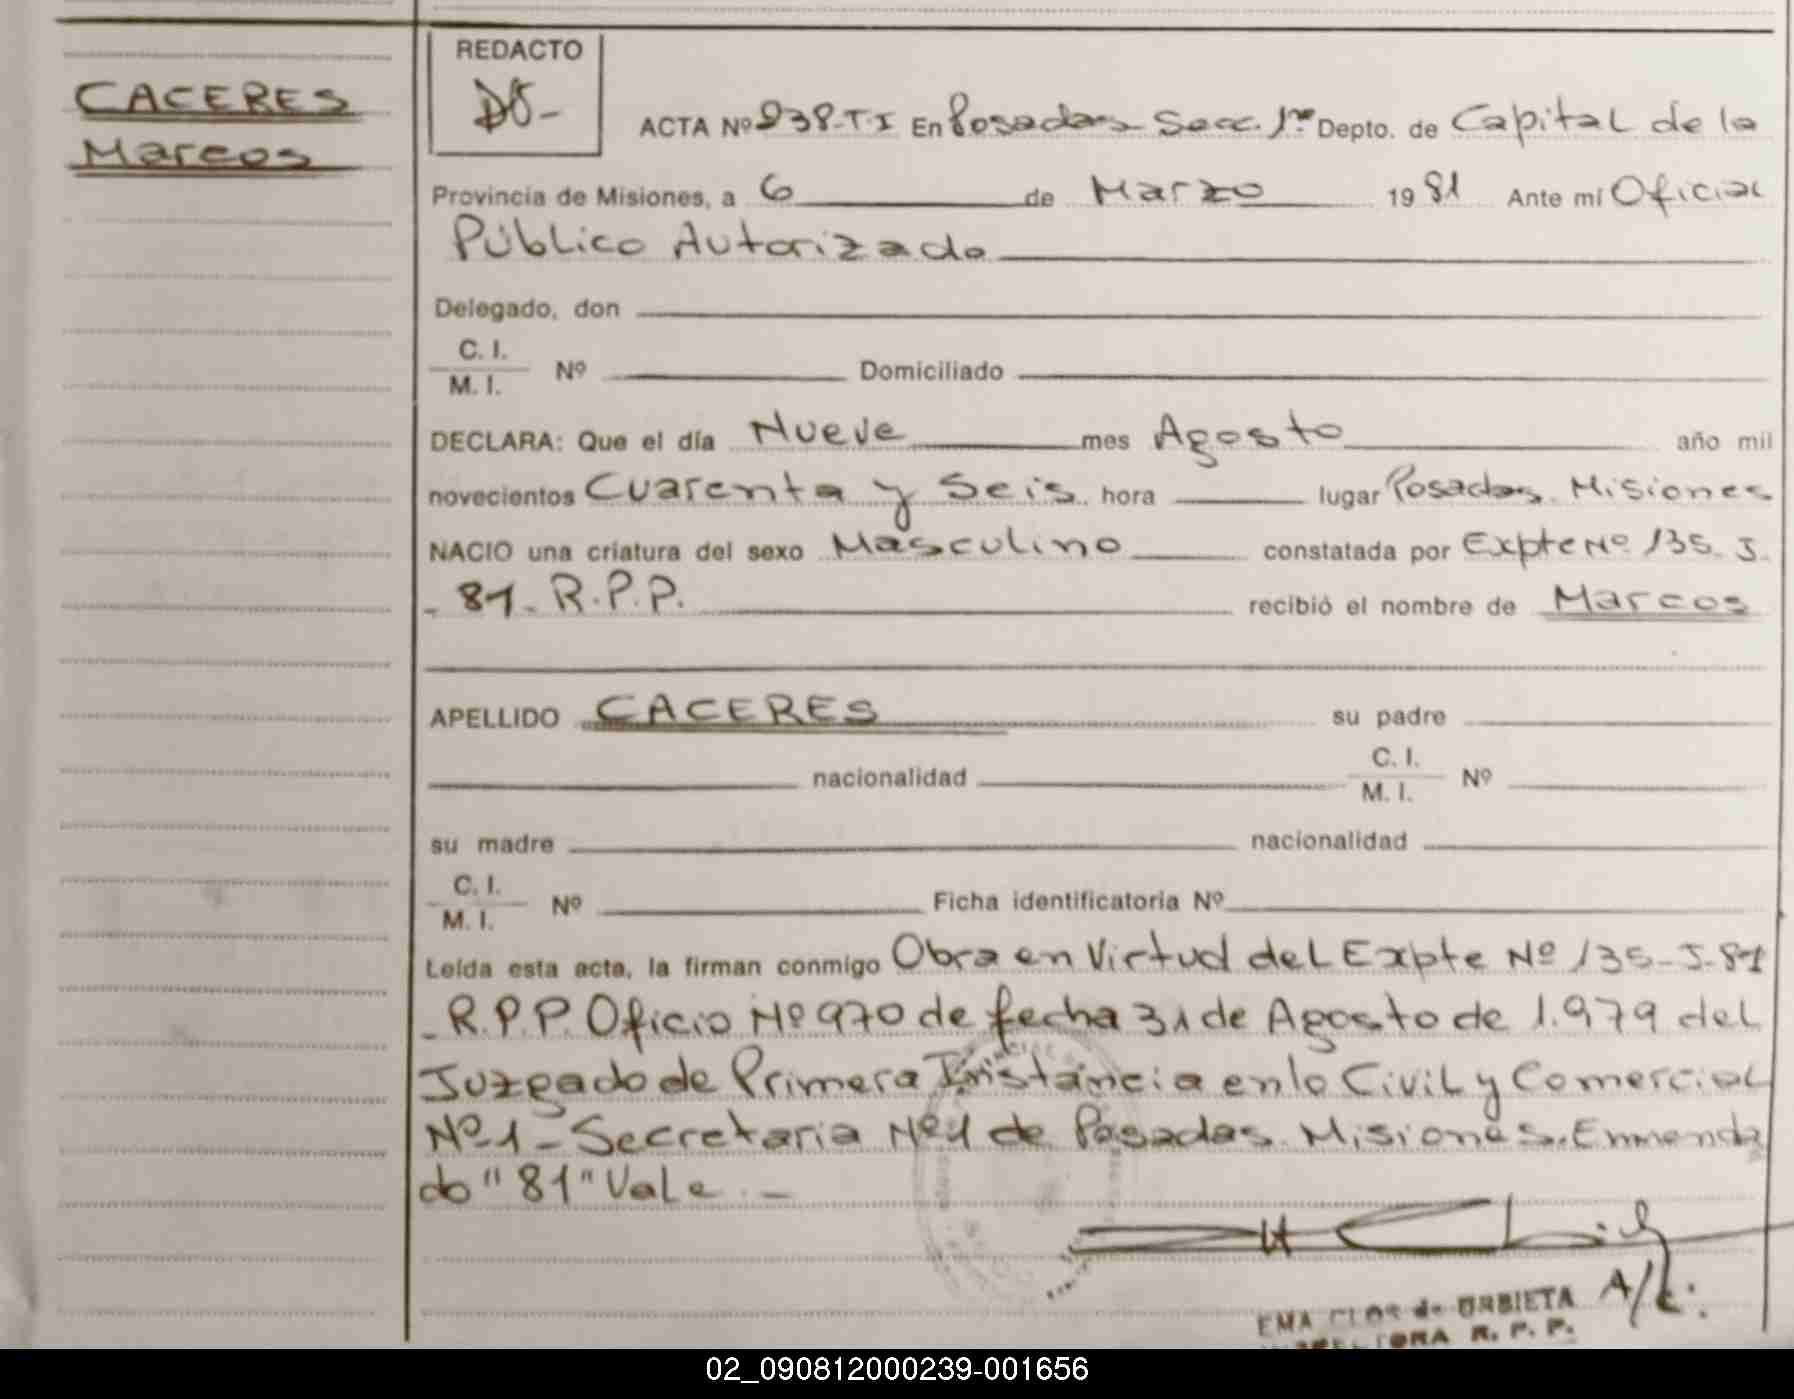 CACERES
Marcos
REDACTO
ACTA Nº 938-T-I En Posadas Secc. 1ra Depto. de Capital de la
Provincia de Misiones, a 6 de Marzo 1981 Ante mí Oficial
Público Autorizado
Delegado, don
C. I.
M. I. Nº Domiciliado
DECLARA: Que el día Nueve mes Agosto año mil
novecientos Cuarenta y Seis hora lugar Posadas. Misiones
NACIO una criatura del sexo Masculino constatada por Expte Nº 135. J.
- 81- R.P.P. recibió el nombre de Marcos
APELLIDO CACERES su padre
nacionalidad C. I.
M. I. Nº
su madre nacionalidad
C. I.
M. I. Nº Ficha identificatoria Nº
Leída esta acta, la firman conmigo Obra en Virtud del Expte Nº 135-J-81
- R.P.P. Oficio Nº 970 de fecha 31 de Agosto de 1.979 del
Juzgado de Primera Instancia en lo Civil y Comercial
Nº-1- Secretaria Nº1 de Posadas. Misiones. Enmenda
do "81" Vale. -
A/C.
EMA CLOS de URBIETA
R. P. P.
02_090812000239-001656